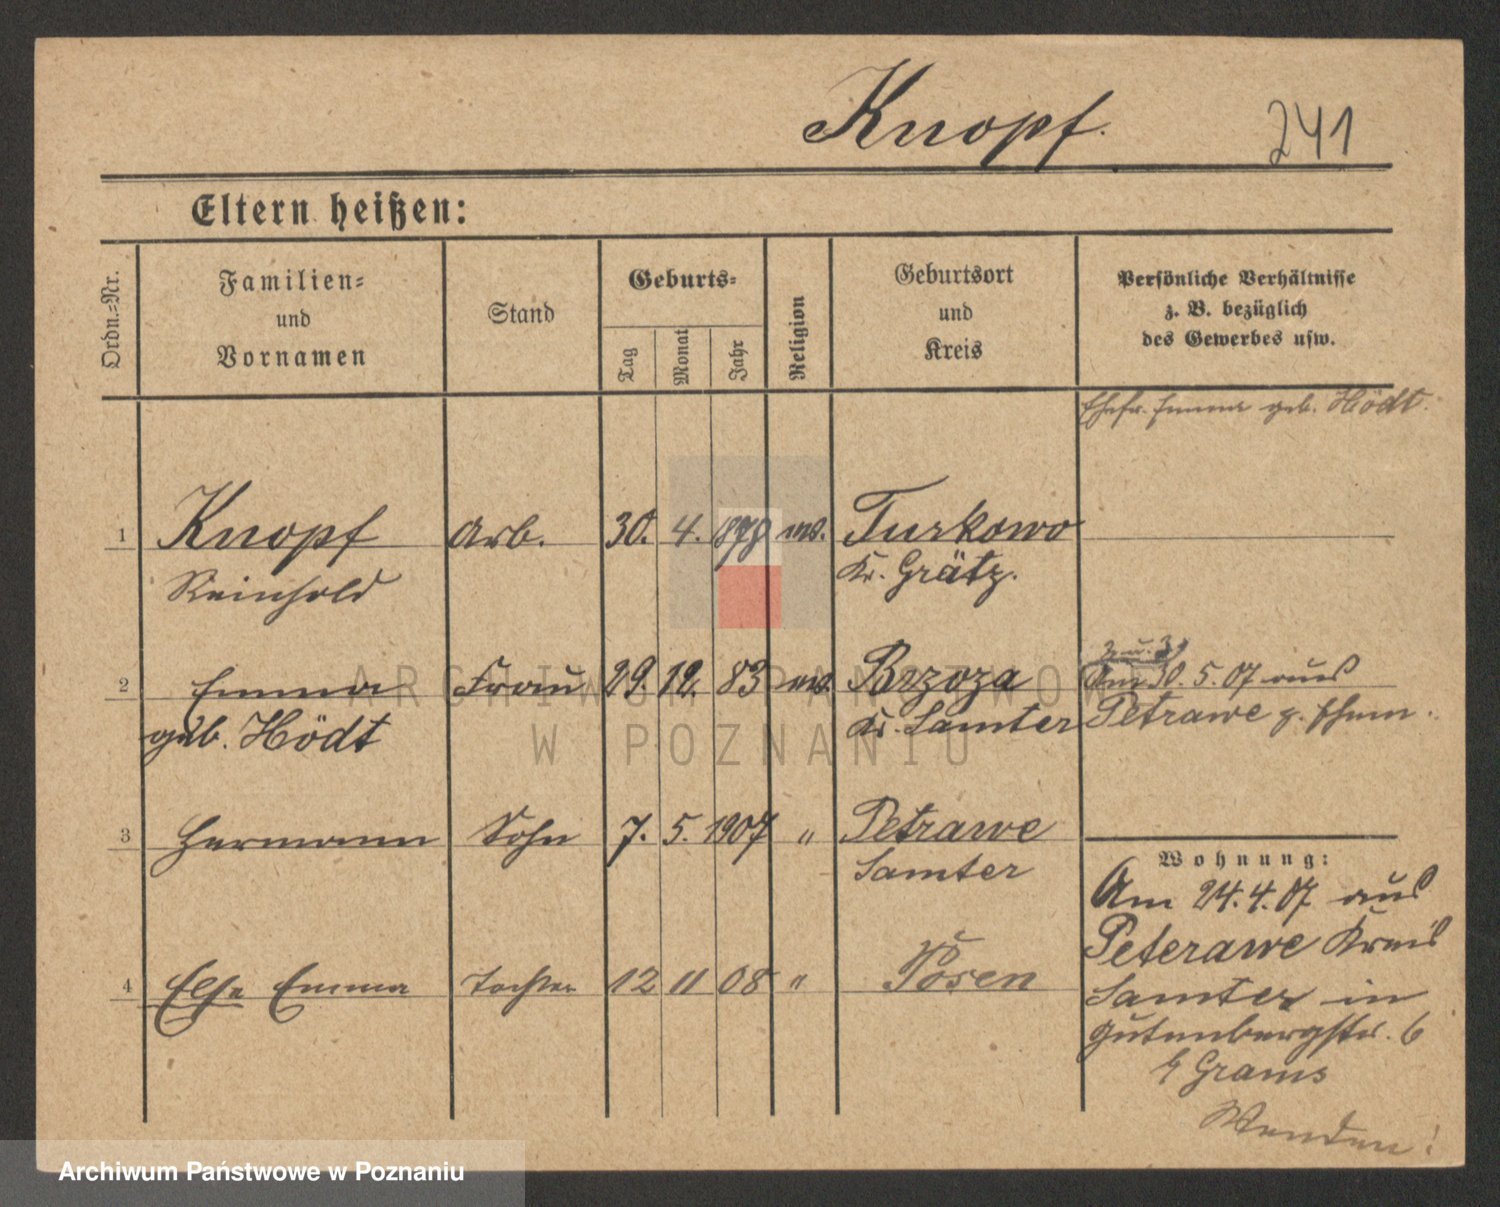 Knopf. 241
Eltern heißen:
Ordn.=Nr.
Familien=
und
Vornamen
Stand
Geburts=
Tag
Monat
Jahr
Religion
Geburtsort
und
Kreis
Persönliche Verhältnisse
z. B. bezüglich
des Gewerbes usw.
Ehefr. Emma geb. Hödt.
1 Knopf Arb. 30. 4. 1878 ev. Turkowo
Reinhold Kr. Grätz.
2 Emma Frau 29. 12. 83 ev. Brzoza
geb. Hödt Kr. Samter
Am 30. 5. 07 aus
Petrawe z. Ehem.
3 Hermann Sohn 7. 5. 1907 " Petrawe
Samter
4 Else Emma Tochter 12 11 08 " Posen
Wohnung:
Am 24. 4. 07 aus
Peterawe Kreis
Samter in
Gutenbergstr. 6
b/ Grams
Wenden!
ARCHIWUM PAŃSTWOWE
W POZNANIU
Archiwum Państwowe w Poznaniu